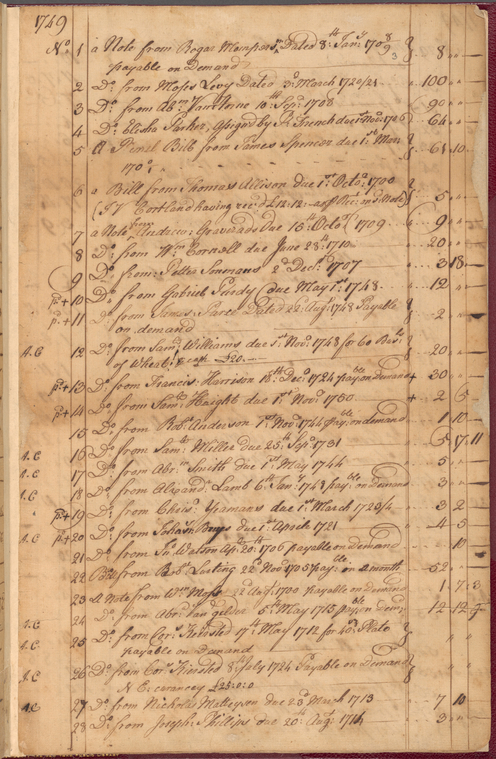 1749
No. 1 a Note from Rogar Mompers Dated 8th Jany 170 8/9 3 } 8 " "
payable on Demand
2 Do. from Moses Levy Dated 3d March 1720/21 " 100 " "
3 Do. from Abm. 10th Sepr. 1708 90 " "
4 Do. Elisha Parker, assigned by P. French due 1st Novr. 1706 64 " "
5 A Penel Bill from James Spencer due 1st Mar } 61 10
170
6 a Bill from Thomas Allison due 1st Octo. 1700 } 5
Cortland having rec'd £12:12: and Note)
7 a Note from Andrew Gravenrads Due 15th Octor. 1709 9 "
8 Do. from Wm. Cornell due June 23d 1710 20
9 Do. from Peter Sonmans 2d Decr. 1707 3 18
p.+ 10 Do. from Gabriel Purdy (due May 1st 1748 12
p.+ 11 Do. from James Dated 22 Augt. 1748 Payable } 2
on demand
A.C 12 Do. from Saml. Williams due 1st Novr. 1748 for 60 Bus. } 20
of Wheat £20
p.+ 13 Do. from Francis Harrison 18th Decr. 1724 pay on demand + 30
p.+ 14 Do. from Saml. Haight due 1st Novr. 1750 + 2 6
15 Do. from Robt. Anderson 1st Novr. 1744 payble on demand 1 10
A.C 16 Do. from Saml. Miller due 25th Sepr. 1731 6 17 11
A.C 17 Do. from Abr. Smith due 1st May 1744 5
A.C 18 Do. from Alexandr. Lamb 6th Jany. 1748 payble on demand 3
p.+ 19 Do. from Chrisr. Yeamans due 1st March 1720/4 3 2
A.C p.+ 20 Do. from Johan due 1st Aprch 1721 4 5
21 Do. from Jn. Watson Apl. 20th 1706 payable on Demand 10
22 Bond from Robt. Lasting 22d Novr. 1705 payble on a month 52
23 A Note from Wm. Moss 22 Augt. 1700 Payable on Demand 1 7 3
24 Do. from Abr. Van gelder 5th May 1715 pay on Dem 12 12 7
A.C 25 Do. from Corn. Kiersted 17th May 1712 for Plate }
payable on Demand
A.C 26 Do. from Corn. Kiersted 8 July 1724 Payable on Demand }
N E: curancey £25:0:0
A.C 27 Do. from Nicholas Matteyson due 28 March 1713 7 10
28 Do. from Joseph Phillips due 20th Augt. 1714 3